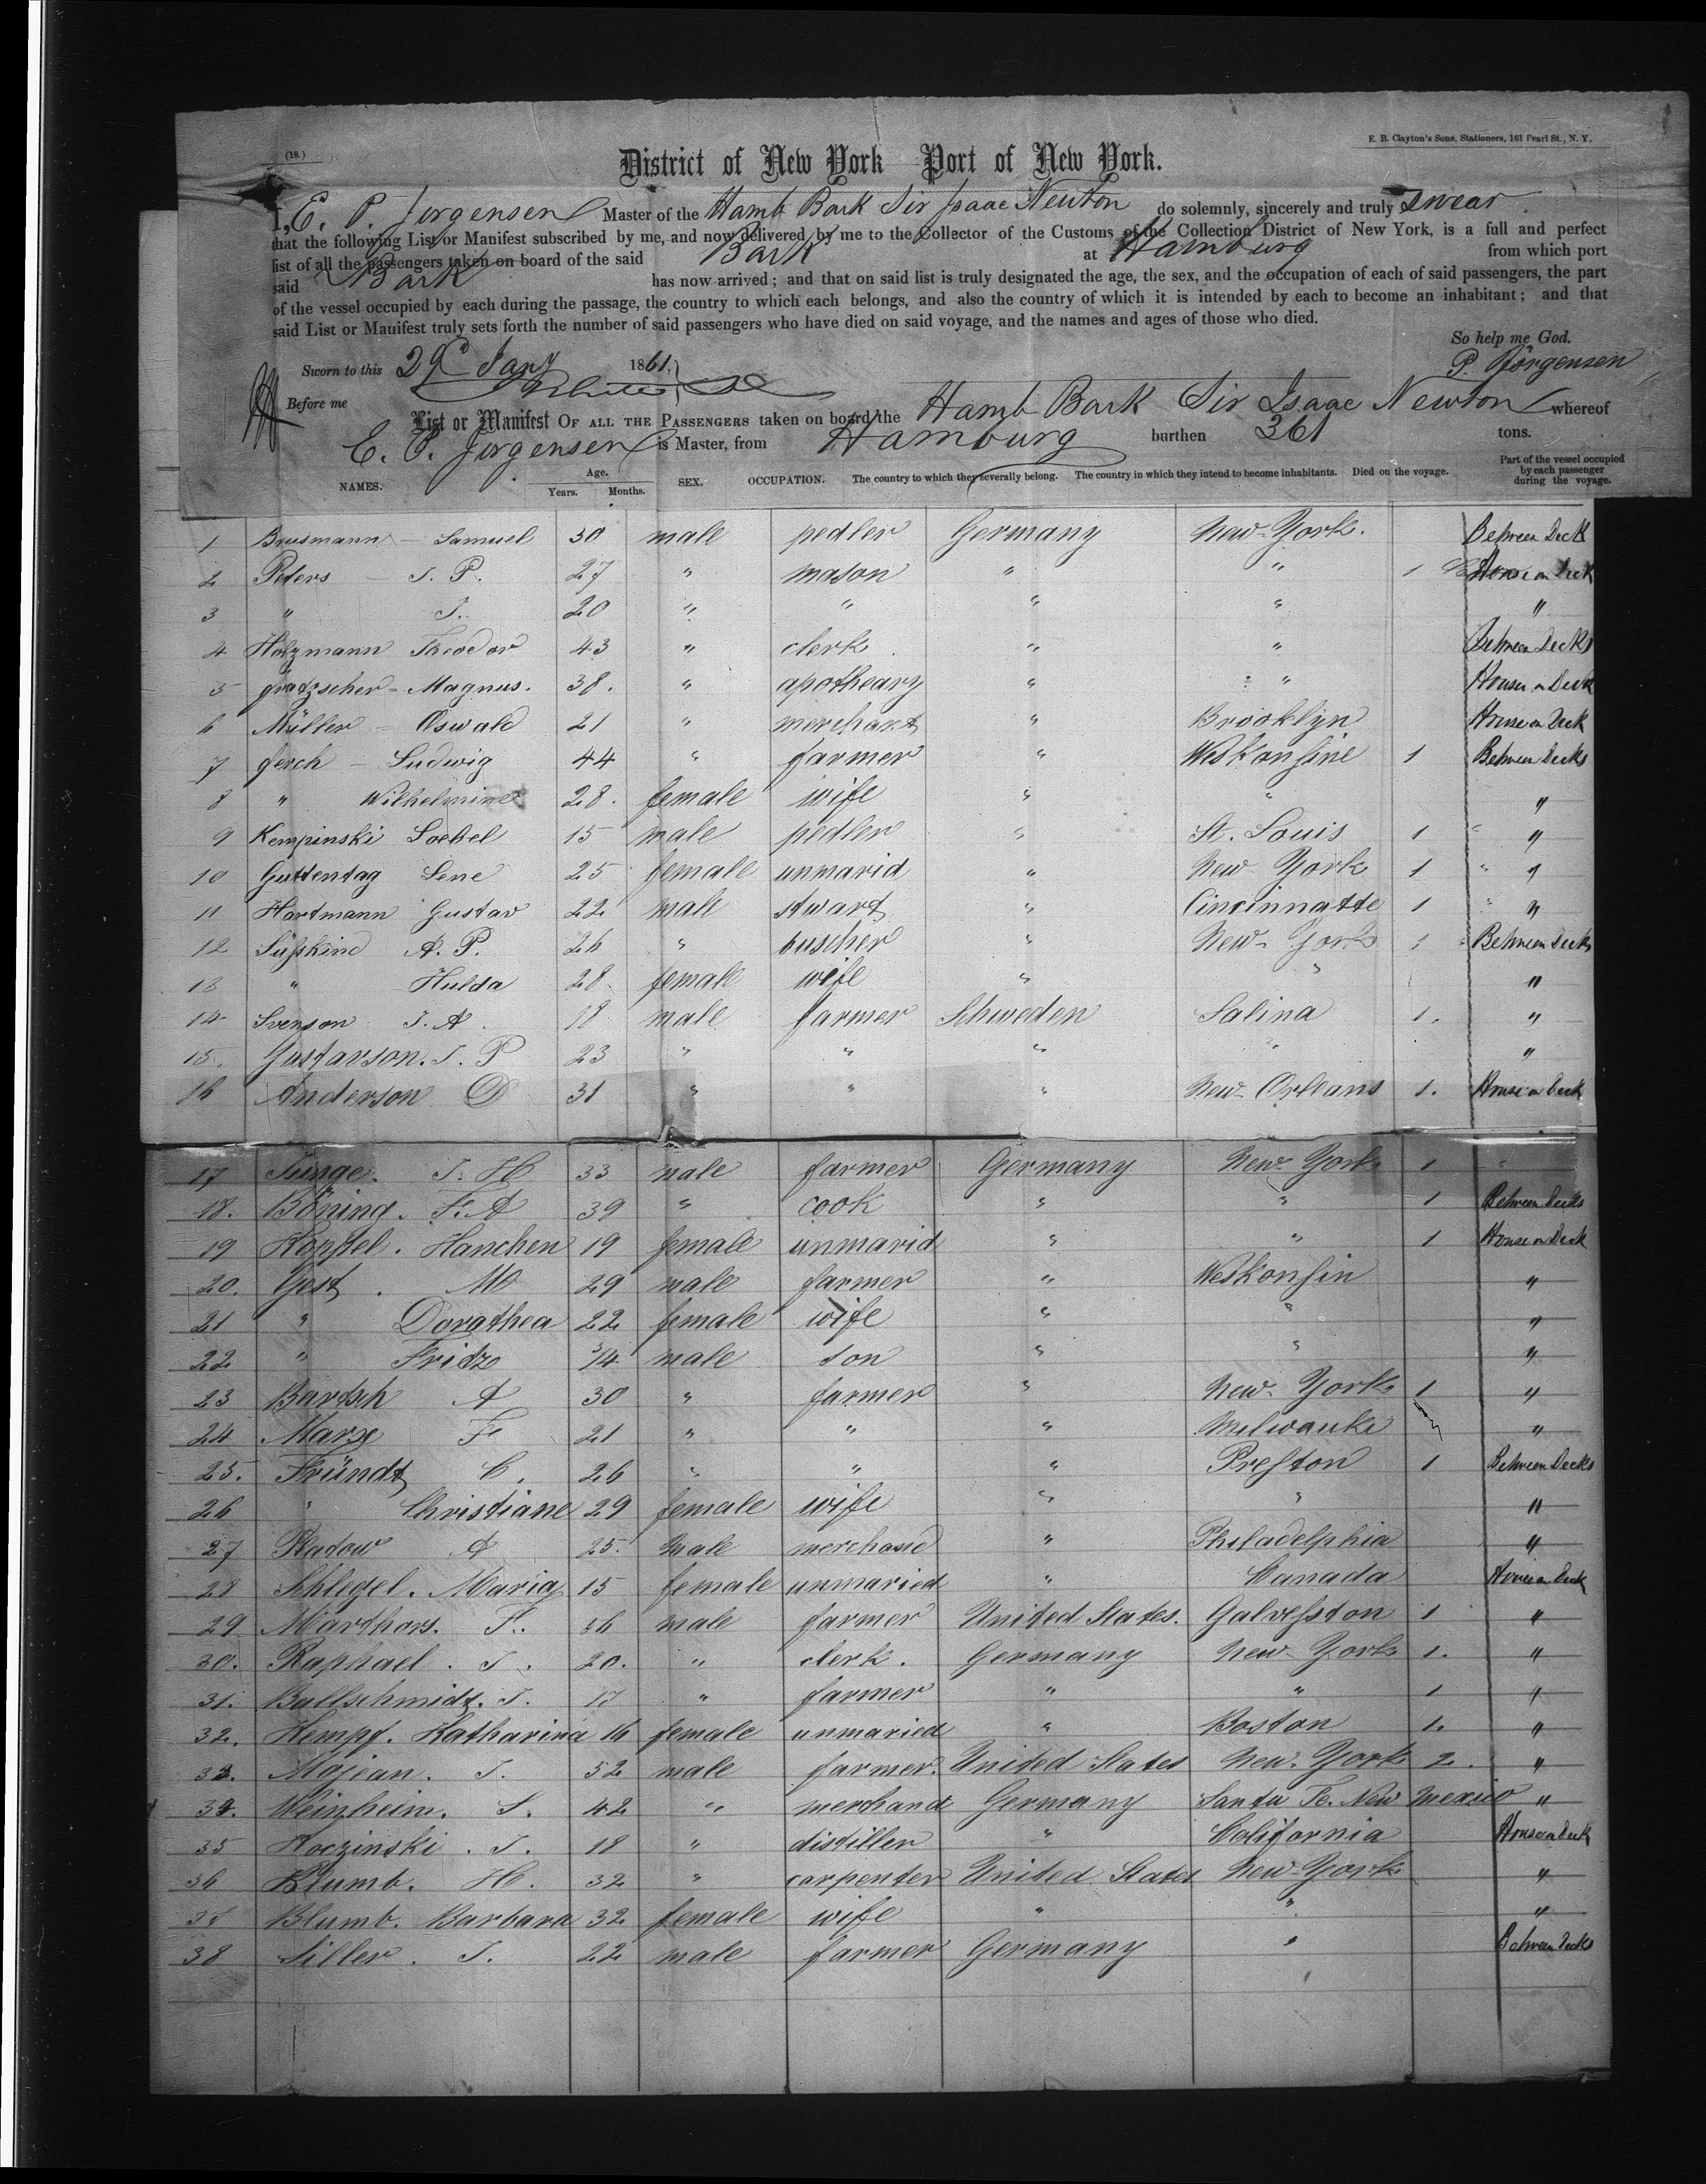 E. B. Clayton's Sons, Stationers, 161 Pearl St., N. Y.
(18.)
District of New York Port of New York.
I, E. P. Jorgensen Master of the Hamb Bark Sir Isaac Newton do solemnly, sincerely and truly swear
that the following List or Manifest subscribed by me, and now delivered by me to the Collector of the Customs of the Collection District of New York, is a full and perfect
list of all the passengers taken on board of the said Bark at Hamburg from which port
said Bark has now arrived; and that on said list is truly designated the age, the sex, and the occupation of each of said passengers, the part
of the vessel occupied by each during the passage, the country to which each belongs, and also the country of which it is intended by each to become an inhabitant; and that
said List or Manifest truly sets forth the number of said passengers who have died on said voyage, and the names and ages of those who died.
So help me God.
Sworn to this 29 Jany 1861. P. Jörgensen
Before me
List or Manifest OF ALL THE PASSENGERS taken on board the Hamb Bark Sir Isaac Newton whereof
E. P. Jorgensen is Master, from Hamburg burthen 361 tons.
NAMES. Age. Years. Months. SEX. OCCUPATION. The country to which they severally belong. The country in which they intend to become inhabitants. Died on the voyage. Part of the vessel occupied by each passenger during the voyage.
1 Brusmann - Samuel 30 male pedler Germany New-York. Between Deck
2 Peters - J. P. 27 " mason " " 1 House on Deck
3 " J. 20 " " " " "
4 Holzmann Theodor 43 " clerk . " " Between Decks
5 fratzscher - Magnus. 38. " apotheary " " House on Deck
6 Müller - Oswald 21 " merchant " Brooklyn House on Deck
7 ferch - Ludwig 44 " farmer " Weskonsine 1 Between Decks
8 " Wilhelmine 28. female wife " " "
9 Kempinski Loebel 15 male pedler " St. Louis 1 "
10 Guttentag Lene 25 female unmarid " New York 1 " "
11 Hartmann Gustav 22 male stwart " Cincinnatte 1 " "
12 Süßkind A. P. 26 " buscher " New-York 1 Between Decks
13 " Hulda 28. female wife " " "
14 Svenson J. A. 18 male farmer Schweden Salina 1. "
15. Gustavson. J. P 23 " " " " "
16 Anderson D 31 " " " New-Orleans 1. House on Deck
17 Junge. J. H 33 male farmer Germany New-York 1 "
18. Böning. F. A 39 " cook " " 1 Between Decks
19 Koppel. Hanchen 19 female unmarid " " 1 House on Deck
20. Gest . M 29 male farmer " Weskonsin "
21 " Dorathea 22 female wife " " "
22 " Fridz 3/4 male son " " "
23 Bartsch A 30 " farmer " New-York 1 "
24 Marx F 21 " " " Milwauke "
25. Fründt C. 26 " " " Preston 1 Between Decks
26 " Christiane 29 female wife " " "
27 Radow A 25. male merchand " Philadelphia "
28 Schlegel. Maria 15 female unmaried " Canada House on Deck
29 Marthors. F. 56 male farmer United States. Galveston 1 "
30. Raphael . J. 20. " clerk. Germany New-York 1. "
31. Ballschmidt. J. 17 " farmer " " 1 "
32. Kempf. Katharina 16 female unmaried " Boston 1. "
33. Mojean. J. 52 male farmer. United States New-York 2. "
34. Weinheim. S. 42 " merchand Germany Santa Fe. New Mexico "
35 Koczinski . J. 18 " distiller " California House on Deck
36 Blumb. H. 32 " carpenter United States New-York "
37 Blumb. Barbara 32 female wife " " "
38 Siller . J. 22 male farmer Germany " Between Decks